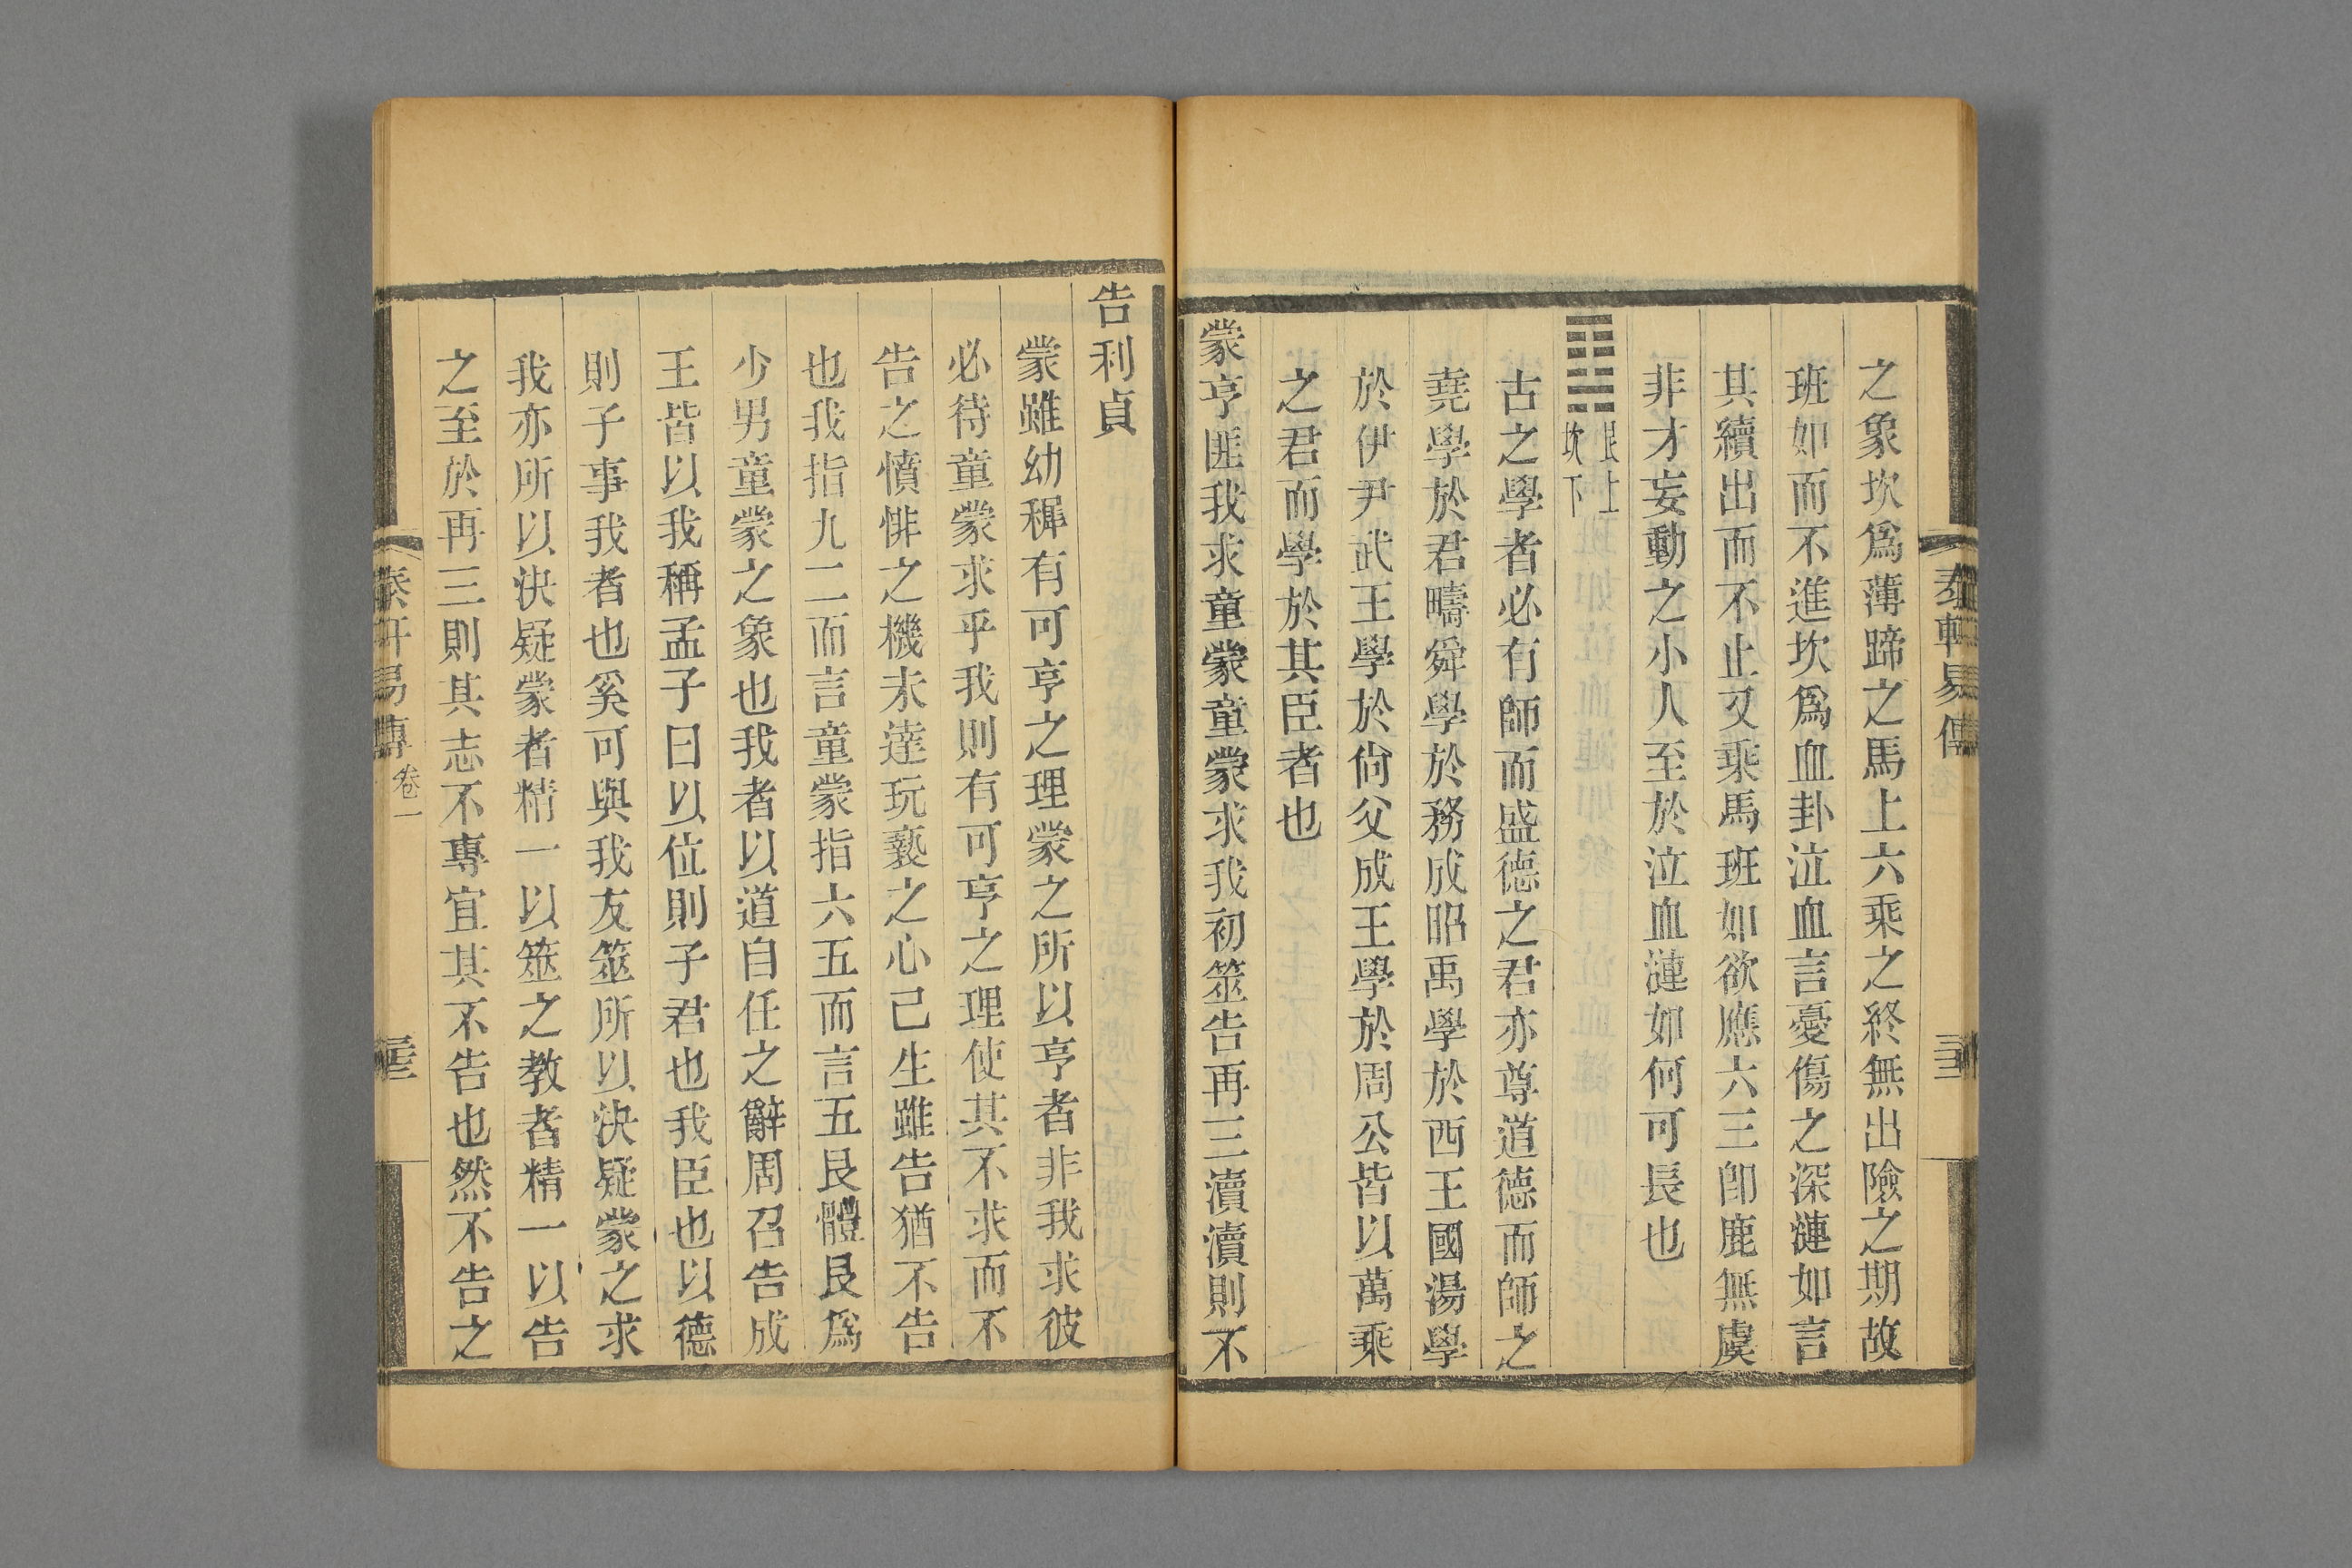 之象坎爲薄蹄之馬上六乘之終無出險之期故
班如而不進坎爲血卦泣血言憂傷之深漣如言
其續出而不止又乘馬班如欲應六三卽鹿無虞
非才妄動之小人至於泣血漣如何可長也
艮上
坎下
古之學者必有師而盛德之君亦尊道德而師之
堯學於君疇舜學於務成昭禹學於西王國湯學
於伊尹武王學於尙父成王學於周公皆以萬乘
之君而學於其臣者也
蒙亨匪我求童蒙童蒙求我初筮告再三瀆瀆則不
告利貞
蒙雖幼穉有可亨之理蒙之所以亨者非我求彼
必待童蒙求乎我則有可亨之理使其不求而不
告之憤悱之機未達玩褻之心已生雖告猶不告
也我指九二而言童蒙指六五而言五艮體艮爲
少男童蒙之象也我者以道自任之辭周召告成
王皆以我稱孟子曰以位則子君也我臣也以德
則子事我者也奚可與我友筮所以決疑蒙之求
我亦所以決疑蒙者精一以筮之教者精一以告
之至於再三則其志不專宜其不告也然不告之
易傳 卷一